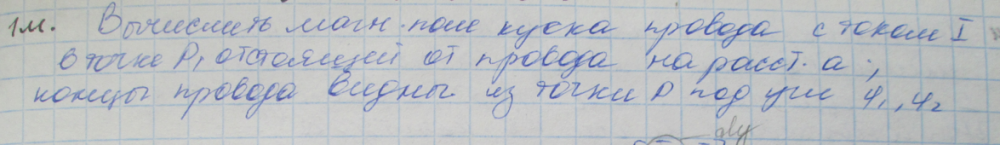 1м. Вычислить магн. поле куска провода с током I
в точке P, отстоящей от провода на расст. a;,
концы провода видны из точки P под угл φ₁, φ₂